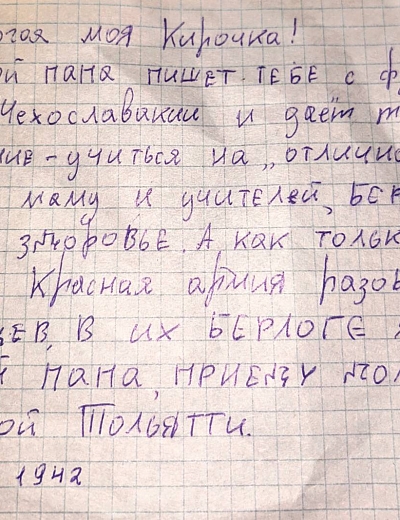 огая моя Кирочка!
ой папа пишет тебе с ф
Чехославакии и даёт т
ние - учиться на „отлично
маму и учителей, БЕР
здоровье. А как тольк
Красная армия разо
цев, В их БЕРЛОГЕ
й папа, приеду дол
ой Тольятти.
1942